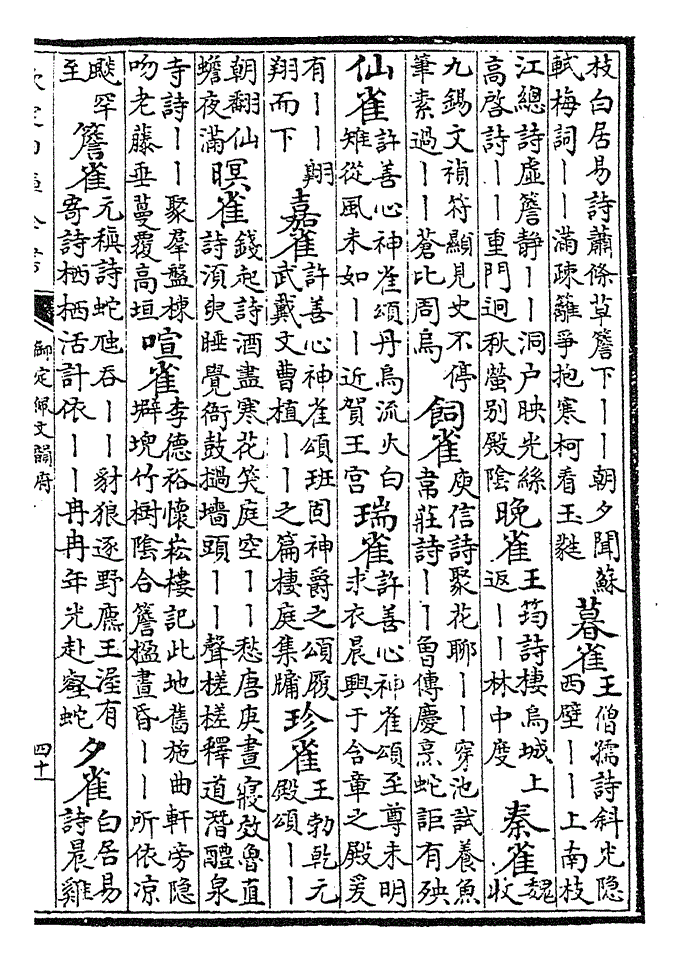 枝白居易詩蕭條草簷下丨丨朝夕聞蘇
軾梅詞丨丨滿疎籬爭抱寒柯看玉蕤
暮雀
王僧孺詩斜光隐
西壁丨丨上南枝
江總詩虛簷靜丨丨洞户映光絲
高啓詩丨丨重門迥秋螢别殿陰
晚雀
王筠詩棲烏城上
返丨丨林中度
秦雀
魏
收
九錫文禎符顯見史不停
筆素過丨丨蒼比周烏
飼雀
庾信詩聚花聊丨丨穿池試養魚
韋莊詩丨丨魯傳慶烹蛇詎有殃
仙雀
許善心神雀頌丹烏流火白
雉從風未如丨丨近賀王宫
瑞雀
許善心神雀頌至尊未明
求衣晨興于含章之殿爰
有丨丨翺
翔而下
嘉雀
許善心神雀頌班固神爵之頌履
武戴文曹植丨丨之篇棲庭集牗
珍雀
王勃乾元
殿頌丨丨
朝翻仙
蟾夜滿
暝雀
錢起詩酒盡寒花笑庭空丨丨愁唐庚晝寢效魯直
詩湏臾睡覺衙鼓撾墻頭丨丨聲槎槎釋道潛醴泉
寺詩丨丨聚羣盤棟
吻老藤垂蔓覆高垣
喧雀
李德裕懷崧樓記此地舊施曲軒旁隐
堄竹樹陰合簷楹晝昏丨丨所依凉
飈罕
至
簷雀
元稹詩蛇虺吞丨丨豺狼逐野麃王渥有
寄詩栖栖活計依丨丨冉冉年光赴壑蛇
夕雀
白居易
詩晨雞
欽定四庫全書
御定佩文韻府
四十一